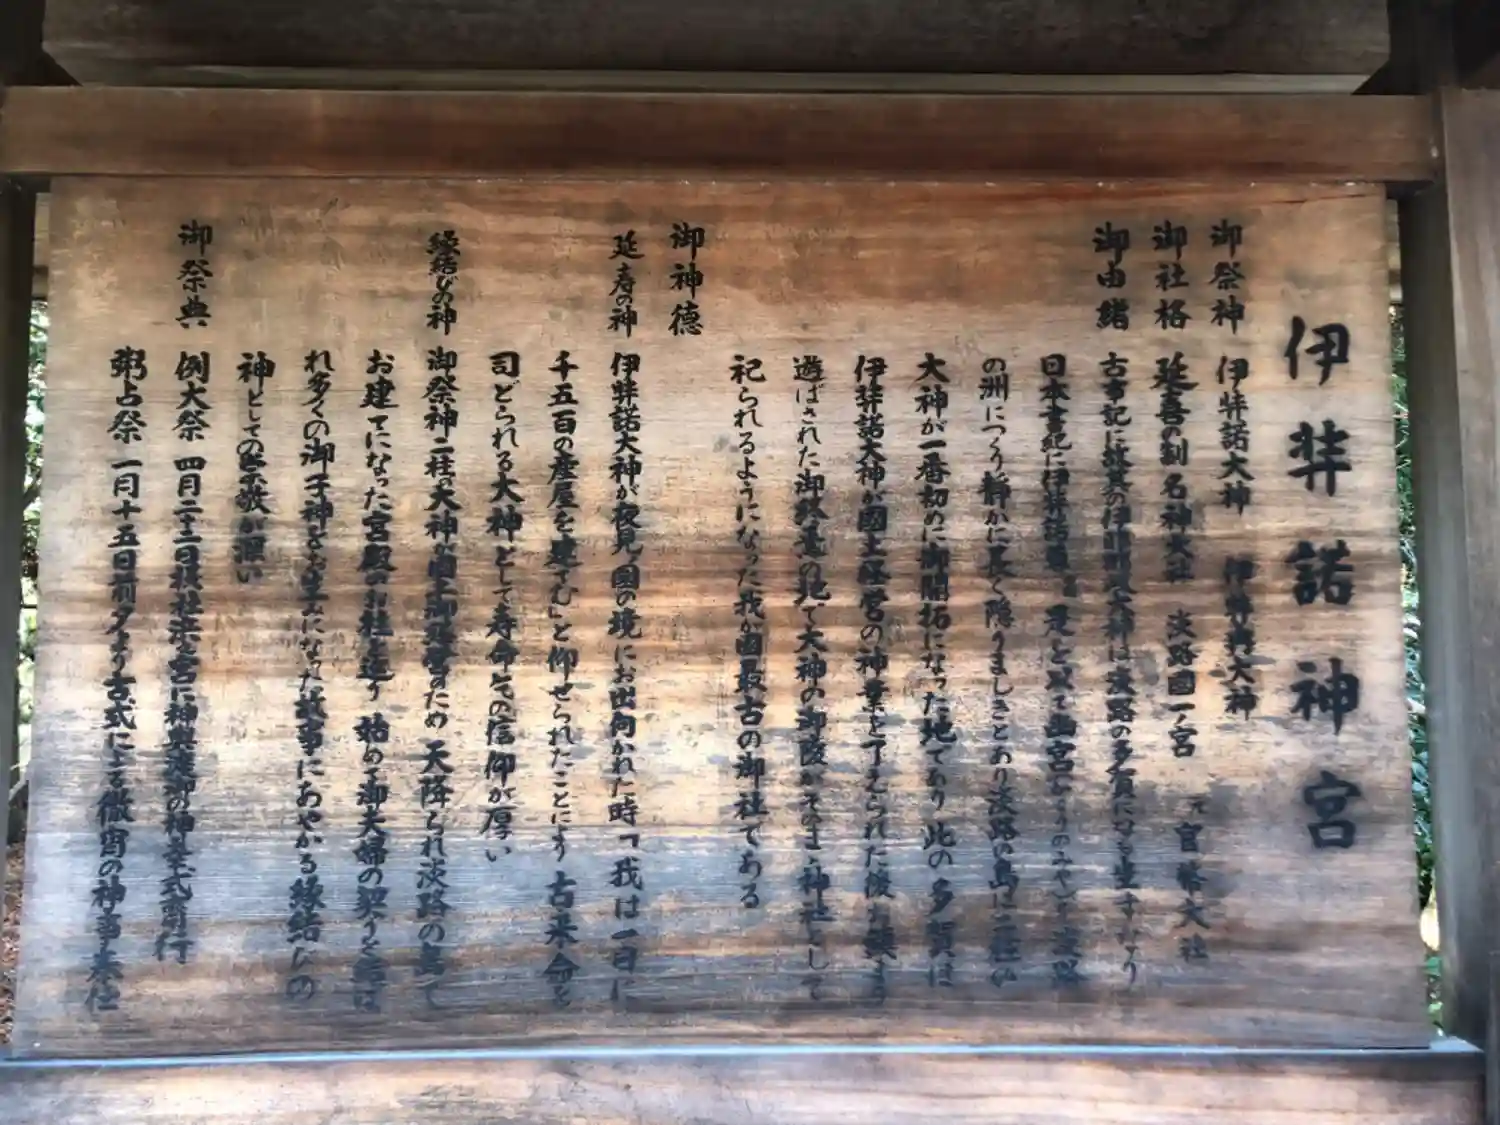 伊弉諾神宮
御祭神 伊弉諾大神 伊弉冉大神
御社格 延喜の制 名神大社 淡路國一ノ宮 元官幣大社
御由緒 古事記に故其の伊耶那岐大神は淡路の多賀になも坐すなり
日本書紀に伊弉諾尊 是を以て幽宮 を淡路
の洲につくり静かに長く隠りましきとあり淡路の島は二柱の
大神が一番初めに御開拓になった地であり此の多賀は
伊弉諾大神が國土経営の神業を了えられた後お鎮まり
遊ばされた御終焉の地で大神の御陵がそのまゝ神社として
祀られるようになった我が國最古の御社である
御神徳
延寿の神 伊弉諾大神が夜見國の境にお出向かれた時「我は一日に
千五百の産屋を建てむ」と仰せられたことにより古来命を
司どられる大神として寿命 の信仰が厚い
縁結びの神 御祭神二柱の大神が國土御経営のため 天降られ淡路の島て
お建てになった宮殿の御柱を廻り 始めて御夫婦の契りを結ば
れ多くの御子神をお生みになった故事にあやかる縁結びの
神としての崇敬が深い
御祭典 例大祭 四月二十二日摂社浜之宮に神輿渡御の神幸式斎行
粥占祭 一月十五日前夕より古式による徹宵の神事奉仕